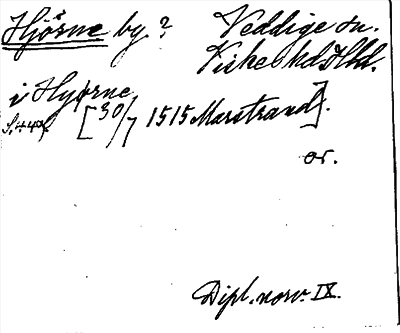 Hjörne by? Veddige sn.
Viske hd Hld.
i Hyørne,
S. 448 [30/7 1515 Marstrand].
or.
Dipl. norv. IX.